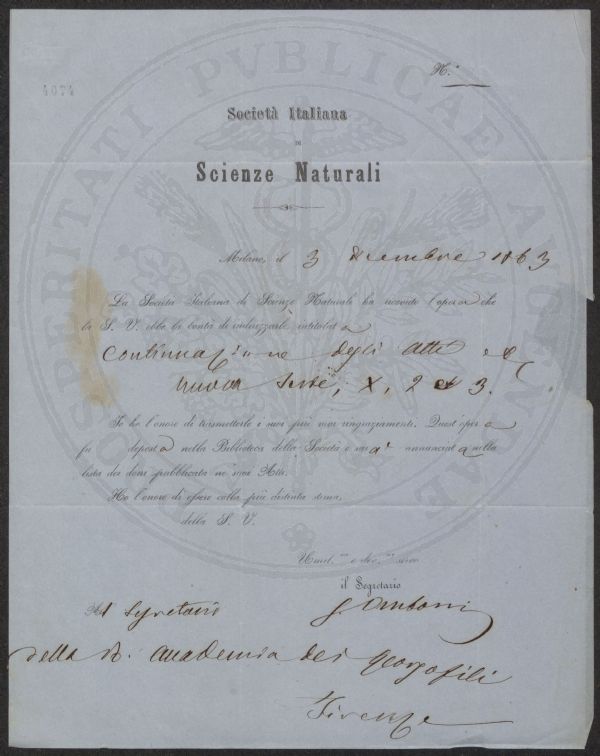 N.°
4074
Società Italiana
DI
Scienze Naturali
Milano, il 3 dicembre 1863
La Società Italiana di Scienze Naturali ha ricevuto l'opera che
la S. V. ebbe la bontà di indirizzarle intitolata
Continuazione degli Atti
nuova serie, X, 2 e 3.
Io ho l'onore di trasmetterle i suoi più vivi ringraziamenti. Quest'opera
fu deposta nella Biblioteca della Società e sarà annunciata nella
lista dei doni pubblicata ne' suoi Atti.
Ho l'onore di essere colla più distinta stima,
della S. V.
Umil.mo e dev.mo servo
il Segretario
Al Segretario
della R. Accademia dei Georgofili
Firenze
PROSPERITATI PVBLICAE AVGENDAE